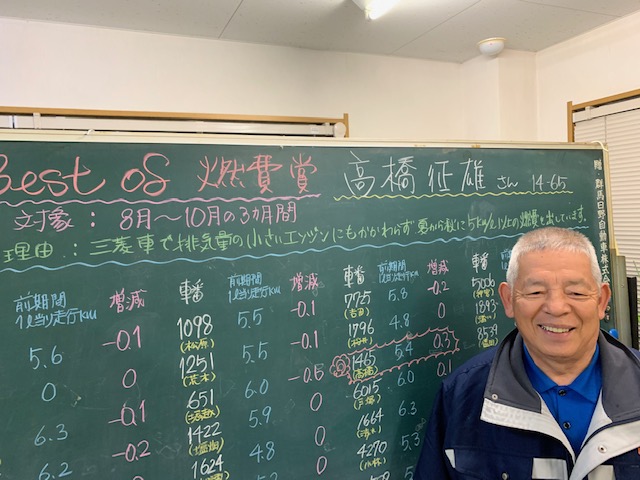 Best of 燃費賞 高橋征雄さん 1465
対象：8月～10月の3カ月間
理由：三菱車で排気量の小さいエンジンにもかかわらず 夏から秋に5km/L以上の燃費を出しています。
贈 群馬日野自動車株式会
前期間 1L当り走行km 増減 車番 前期間 1L当り走行km 増減 車番 前期間 増減 車番
5.6 -0.1 1098 5.5 -0.1 7725 5.8 -0.2 5006
(松原) (吉田)
0 0 1251 5.5 -0.1 1796 4.8 0 1893
(荒木)
6.3 -0.1 651 6.0 -0.5 1465 5.4 0.3 8539
(高橋)
6.2 -0.2 1422 5.9 0 6015 6.0 0.1
1624 4.8 0 1664 6.3
(清水)
0 4270 5.3
(小林)